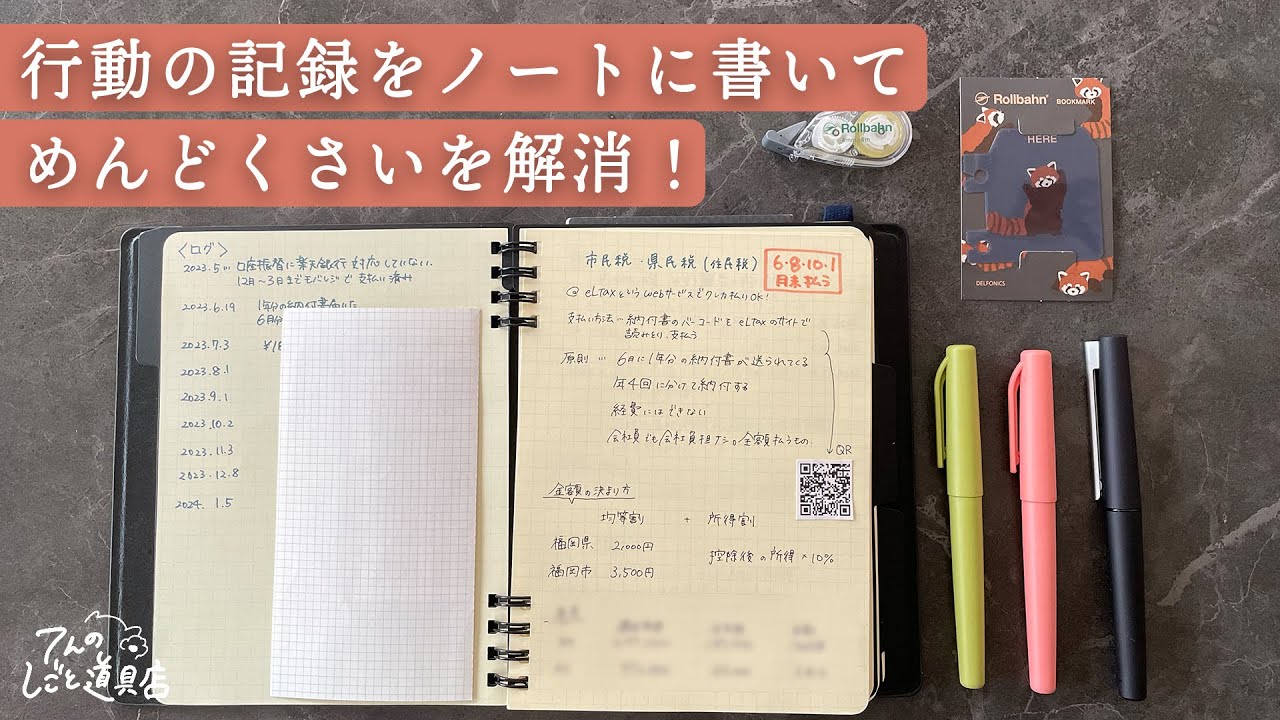 行動の記録をノートに書いて
めんどくさいを解消！
Rollbahn
Rollbahn®
BOOKMARK
HERE
DELFONICS
〈ログ〉
2023.5… 口座振替に楽天銀行対応していない.
12月〜3日までモバレジで支払い済み
2023.6.19 1年分の納付書届いた
6月
2023.7.3
2023.8.1
2023.9.1
2023.10.2
2023.11.3
2023.12.8
2024.1.5
市民税・県民税(住民税)
6・8・10・1
月末払う
@ eLTaxというwebサービスでクレカ払いOK!
支払い方法…納付書のバーコードをeLtaxのサイトで
読みとり、支払う
原則… 6月に1年分の納付書が送られてくる
年4回に分けて納付する
経費にはできない
会社員でも会社負担ナシ。全額払うもの.
QR
金額の決まり方
均等割 + 所得割
福岡県 2,000円 控除後の所得×10%
福岡市 3,500円
てんの
しごと道具店